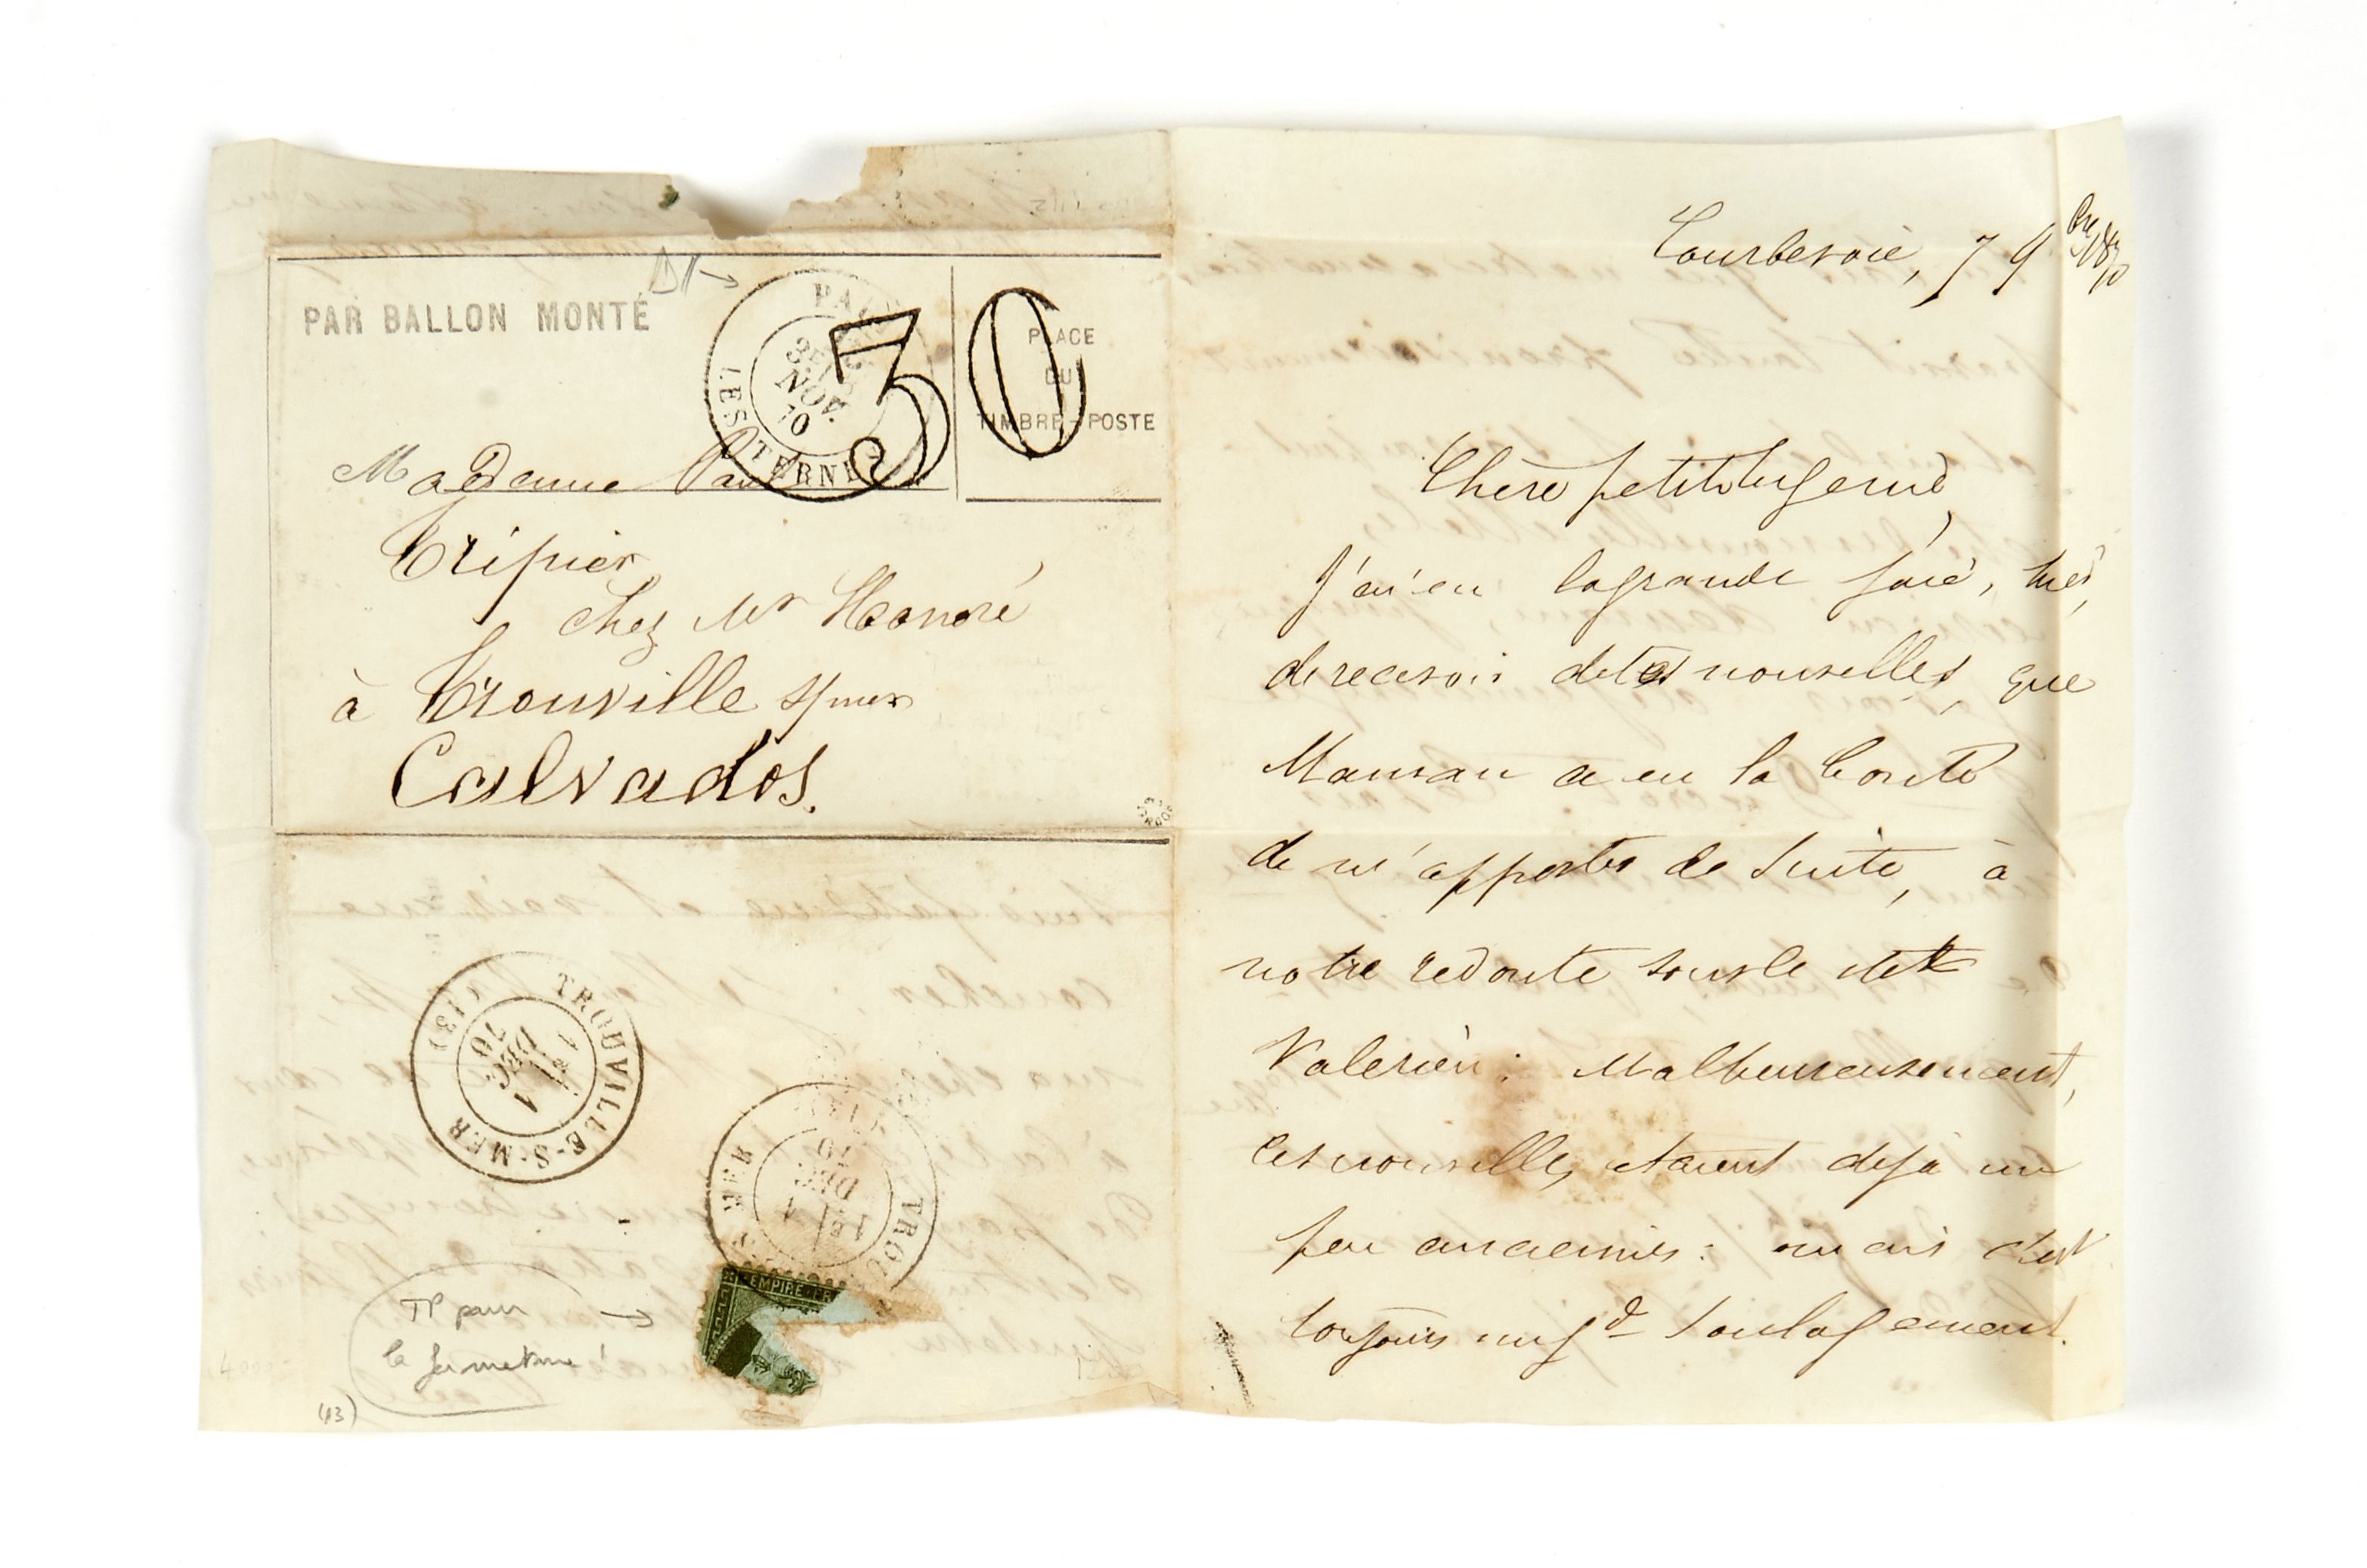 PAR BALLON MONTÉ
PARIS
3E
NOV.
70
LES TERNES
30
PLACE
DU
TIMBRE-POSTE
Madame Paul
Tripier
chez Mr Honoré
à Trouville s/mer
Calvados.
TROUVILLE-S-MER
1E
1
DEC
70
(13)
TROU
MER
1E
1
DEC
70
EMPIRE FR
TP pour
la fermeture!
(13)
Courbevoie, 7 9bre 1870
Chère petite
J'ai eu la grande joie, hier,
de recevoir de tes nouvelles, que
Maman a eu la bonté
de m'apporter de suite, à
notre redoute sous le Mt
Valérien: Malheureusement,
ces nouvelles étaient déjà un
peu anciennes: mais c'est
toujours un gd soulagement.